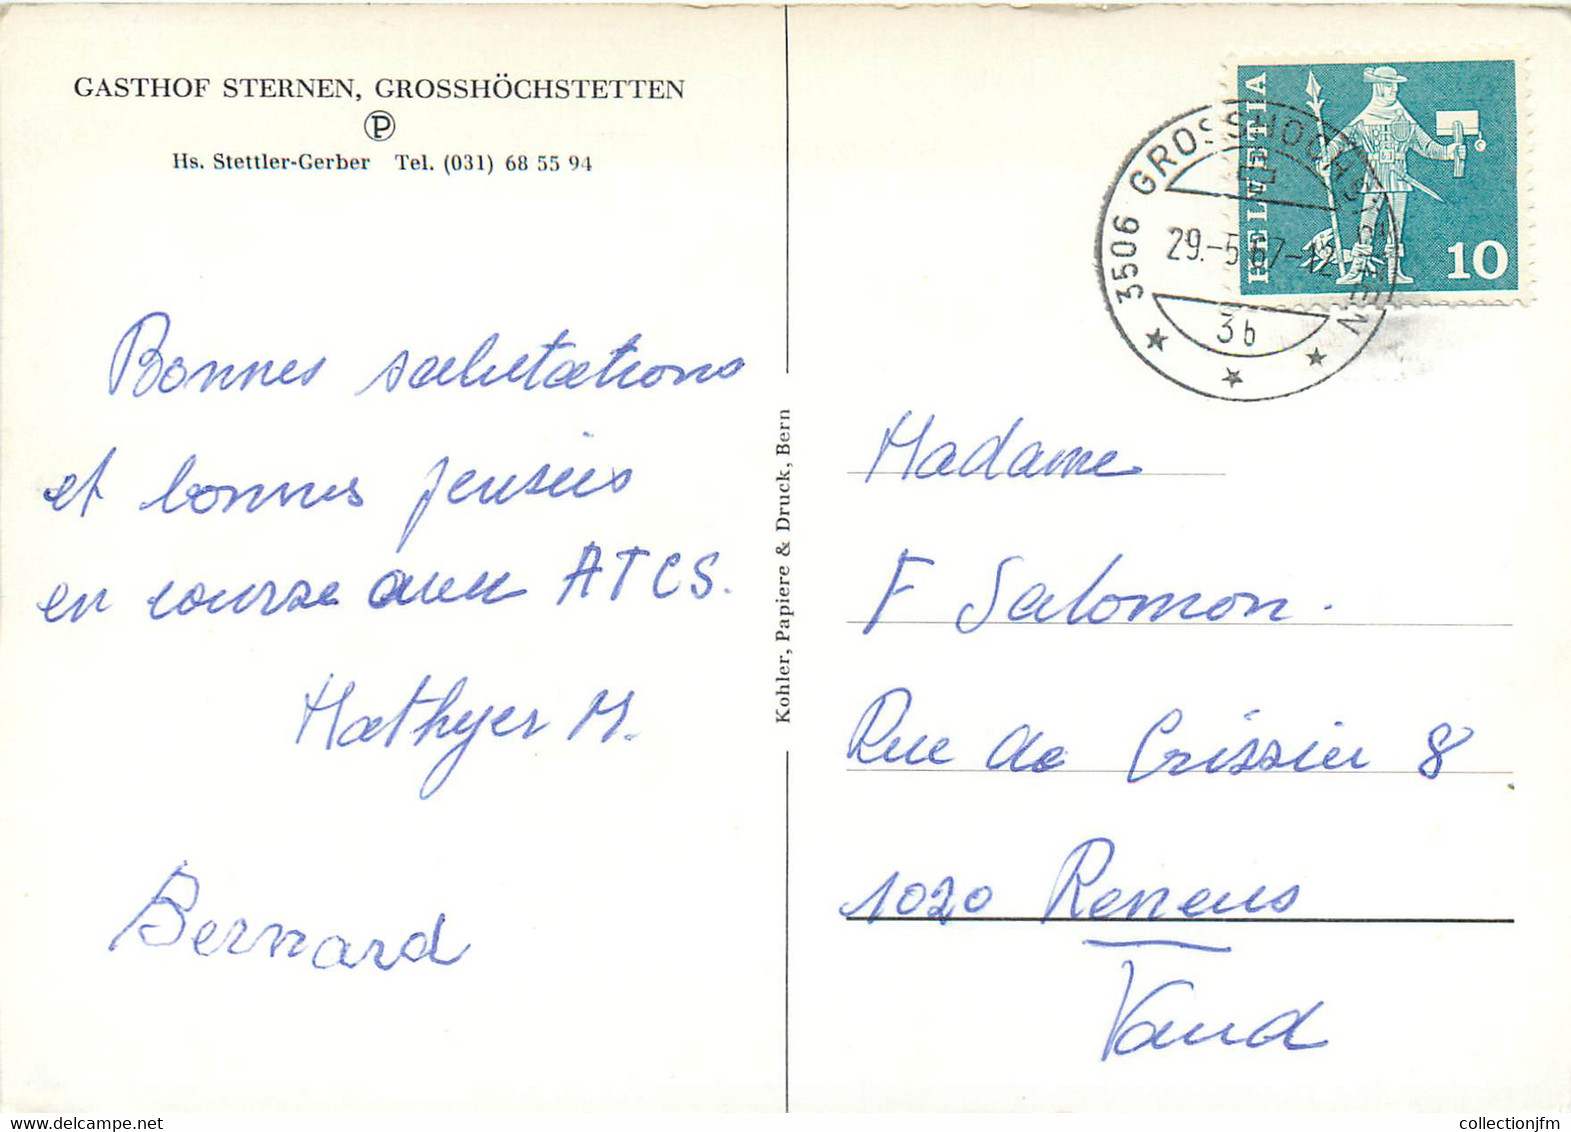 GASTHOF STERNEN, GROSSHÖCHSTETTEN
P
Hs. Stettler-Gerber Tel. (031) 68 55 94
Bonnes salutations
et bonnes pensées
en course avec ATCS.
Mathyer M.
Bernard
Kohler, Papiere & Druck, Bern
HELVETIA
10
3506 GROSSHÖCHSTETTEN
29.-5.67-12
3b
Madame
F Salomon.
Rue de Crissier 8
1020 Renens
Vaud
collectionjfm